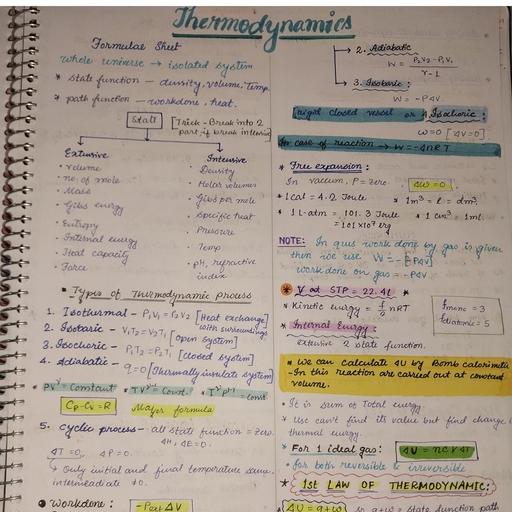 Thermodynamics
Formulae Sheet
whole universe → isolated system
* state function - density, volume, Temp.
* path function - workdone, heat.
State
Trick - Break into 2
part, if break intensive
Extensive
• volume
• no. of mole
• Mass
• Gibbs energy
• Entropy
• Internal energy
• Heat capacity
• Force
Intensive
• Density
• Molar volumes
• Gibbs per mole
• Specific heat
• Pressure
• Temp
• pH, refractive
index
• Types of Thermodynamic process
1. Isothermal - P₁V₁ = P₂V₂ [Heat exchange
with surroundings]
2. Isobaric - V₁T₂ = V₂T₁ [open system]
3. Isochoric - P₁T₂ = P₂T₁ [closed system]
4. Adiabatic - q=0 [Thermally insulate system]
* Constant * Const. * = const
Cp-Cv=R Major formula
5. Cyclic process - all state function = zero
ΔH, ΔE=0.
ΔT=0, ΔP=0.
Only initial and final temperature same.
intermediate ≠0.
• Workdone: -Pext ΔV
2. Adiabatic
W = P₂V₂ - P₁V₁
γ-1
3. Isobaric:
W = -PΔV.
rigid closed vessel or 4. Isochoric:
w=0 [ΔV=0]
In case of reaction → W = -ΔnRT
* Free expansion:
In vacuum, P = Zero. ΔW=0
* 1 Cal = 4.2 Joule * 1m³ = l = dm³.
* 1 L-atm = 101.3 Joule * 1 cm³ = 1ml
= 101×10⁷ erg
NOTE: In ques work done by gas is given
then we use W = -[-PΔV]
work done on gas = -PΔV.
* V at STP = 22.4L
* Kinetic energy = f/2 nRT
fmono = 3
fdiatomic = 5
* Internal Energy:
extensive & state function.
* We can calculate ΔU by Bomb calorimeter
- In this reaction are carried out at constant
volume.
• It is sum of Total energy.
• Use can't find its value but find change
thermal energy
• For 1 ideal gas: ΔU = nCvΔT
• for both reversible & irreversible
* 1ST LAW OF THERMODYNAMIC:
ΔU = q+w so q+w = state function path